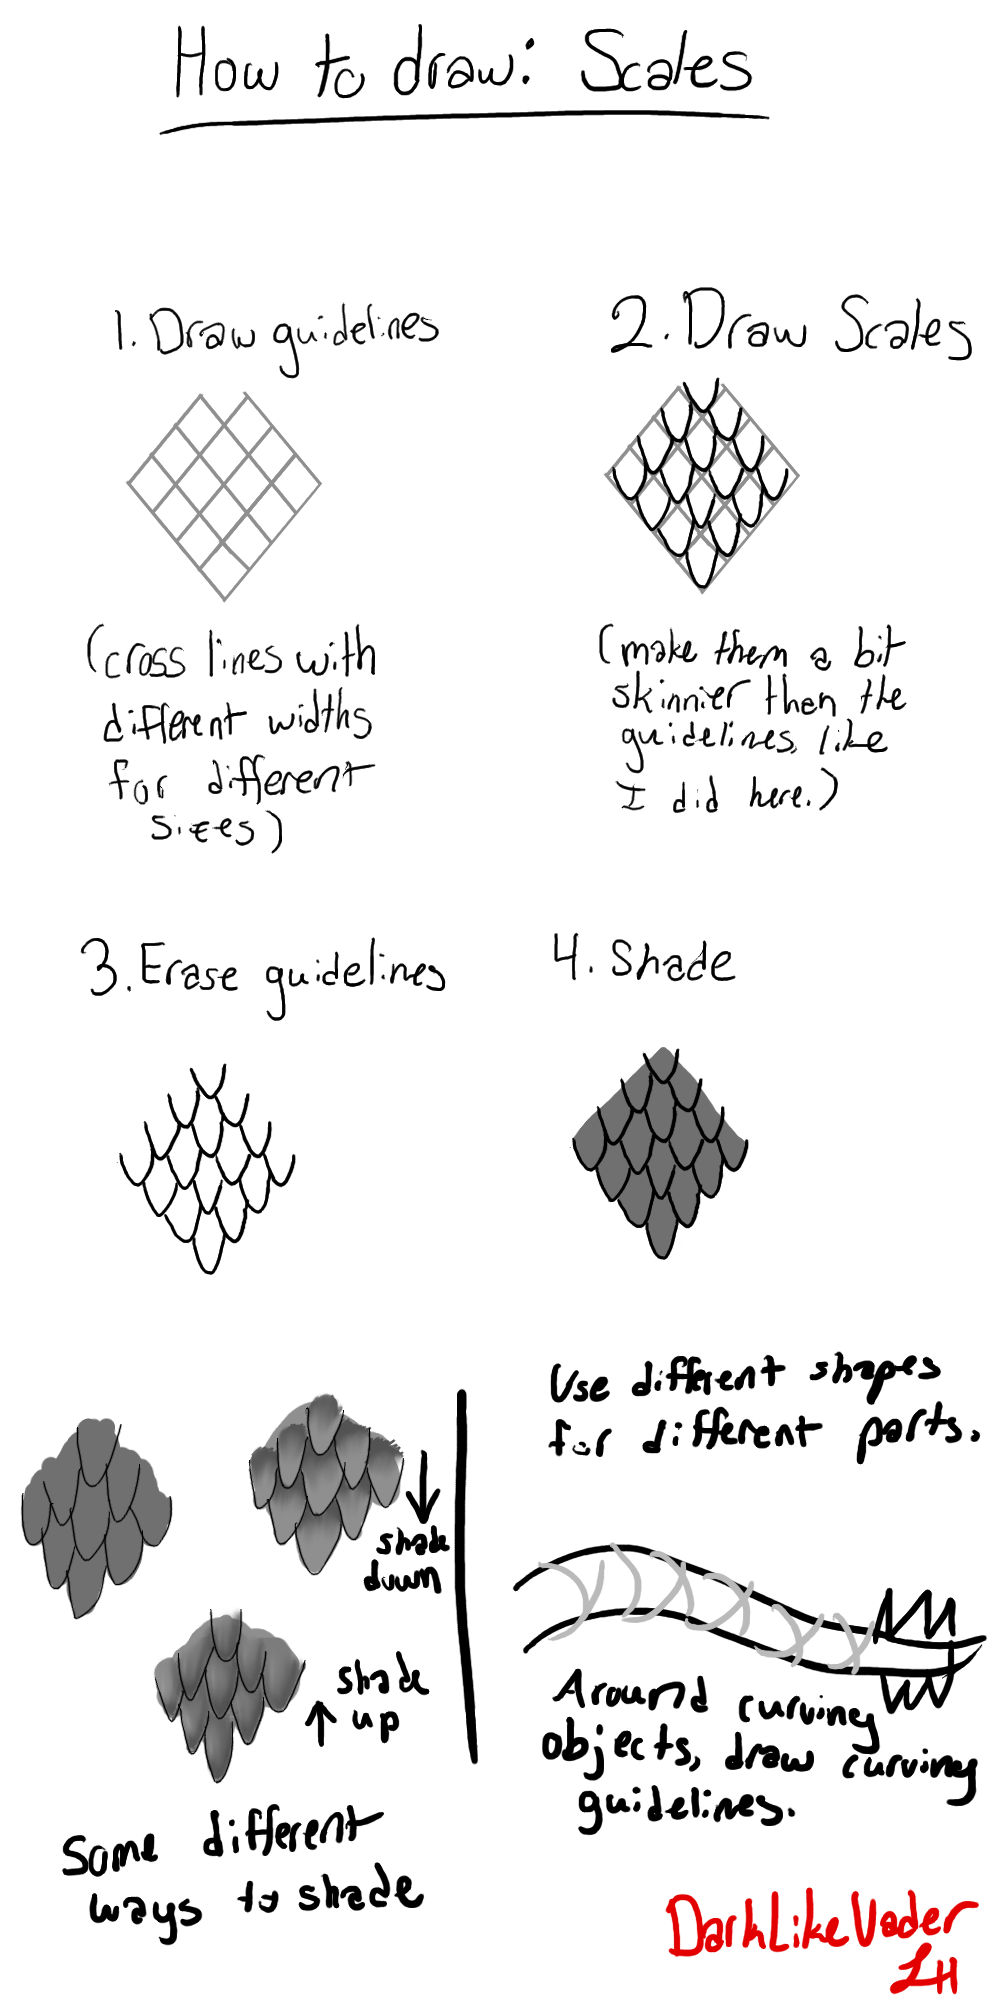 How to draw: Scales
1. Draw guidelines
(cross lines with
different widths
for different
sizes)
2. Draw Scales
(make them a bit
skinnier then the
guidelines, like
I did here.)
3. Erase guidelines
4. Shade
shade
down
shade
up
Some different
ways to shade
Use different shapes
for different parts.
Around curving
objects, draw curving
guidelines.
DarkLikeVader
LH